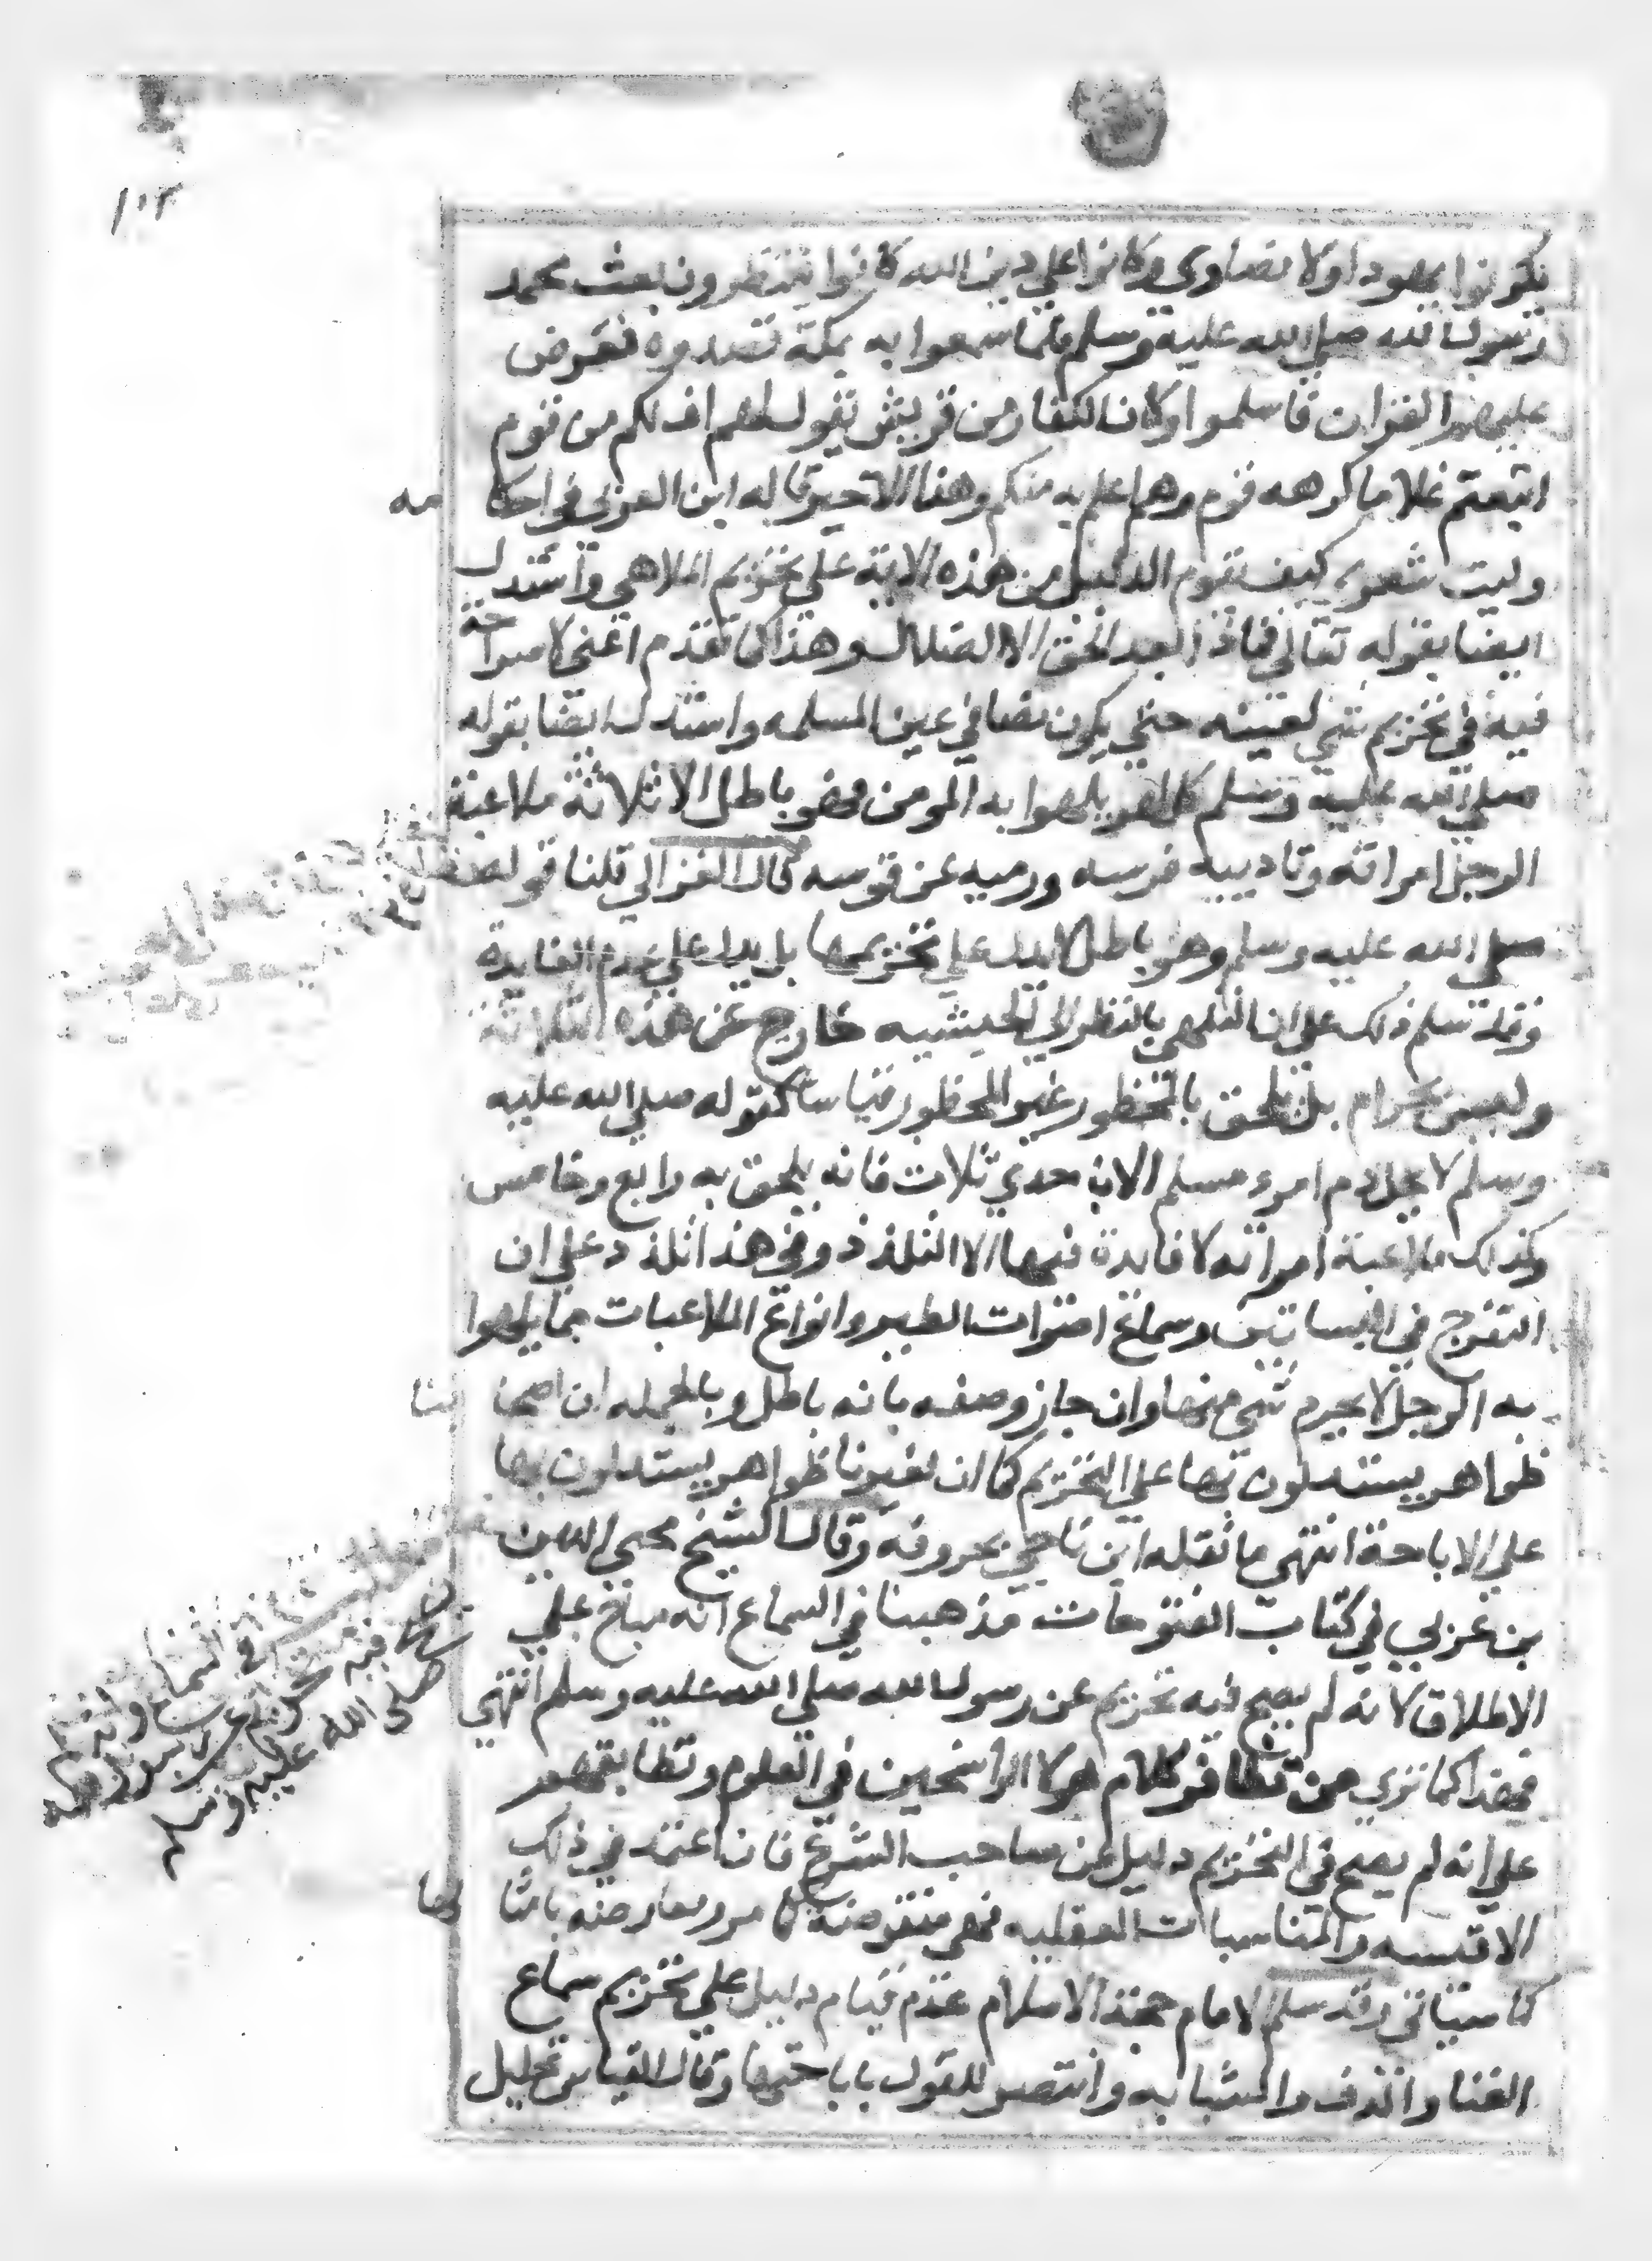 ١٠٣
يكونوا يهودا ولا نصارى وكانوا على دين الله كانوا ينتظرون بعث محمد
رسول الله صلى الله عليه وسلم فلما سمعوا به بمكة قصدوه فعرض
عليهم القران فاسلموا وكان الكفار من قريش يقول لهم اف لكم من قوم
اتبعتم غلاما كرهه قوم وهم اعلم به منكم وهذا الاخير قاله ابن العربي في احكامه
وليت شعري كيف يقوم الدليل من هذه الاية على تحريم الملاهي واستدل
ايضا بقوله تعالى فماذا بعد الحق الا الضلال وهذا كما تقدم اعني لا صراحة
فيه في تحريم شي لعينه حتى يكون نصا في عين المسلمه واستدل ايضا بقوله
صلى الله عليه وسلم كل لهو يلهوا به المومن فهو باطل الا ثلاثة ملاعبة
الرجل امراته وتاديبه فرسه ورميه عن قوسه قال الغزالي قلنا قوله
صلى الله عليه وسلم وهو باطل لا يدل على تحريمها بل يدل على عدم الفايدة
وقد نسلم ذلك على ان التلهي بالنظر الى الحبشيه خارج عن هذه الثلاثة
وليس بحرام بل يلحق بالمحظور غير المحظور قياسا كقوله صلى الله عليه
وسلم لا يحل دم امرء مسلم الا باحدي ثلاث فانه يلحق به رابع وخامس
وكذلك ملاعبة امراته لا فايدة فيها الا التلذذ وفي هذا تلذذ على ان
التفرج في البساتين وسماع اصوات الطير وانواع الملاعبات مما يلهوا
به الرجل لا يحرم شي منها وان جاز وصفه بانه باطل وبالجمله ان لصحابنا
ظواهر يستدلون بها على التحريم كما ان لغيرنا ظواهر يستدلون بها
على الاباحة انتهى ما نقله ابن ناجي بحروفه وقال الشيخ محيى الدين
بن عربي في كتاب الفتوحات مذهبنا في السماع انه مباح على
الاطلاق لانه لم يصح فيه تحريم عن رسول الله صلى الله عليه وسلم انتهى
فهذا كما ترى من تظافر كلام هولا الراسخين في العلوم وتطابقهم
على انه لم يصح في التحريم دليل عن صاحب الشرع فان اعتمد في ذلك
الاقيسه والمناسبات العقليه فهي منقوضه كما مر ومعارضه بامثالها
كما سياتي وقد سلم الامام حجة الاسلام عدم قيام دليل على تحريم سماع
الغنا والدف والشبابه وانتصر للقول باباحتها وقال القياس تحليل
في السماع وانه لم
يصح فيه تحريم عن رسول الله
صلى الله عليه وسلم